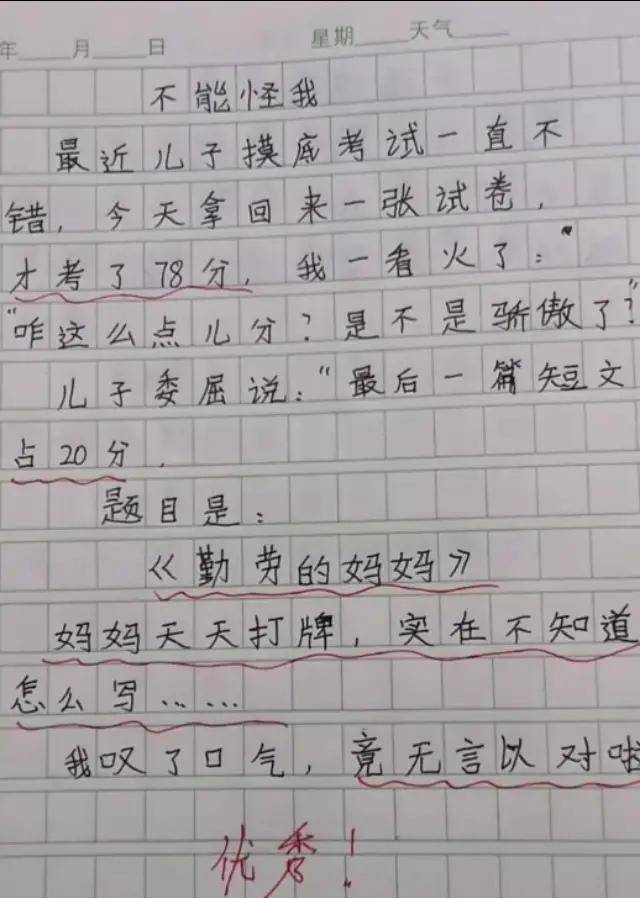 年 月 日 星期 天气
不能怪我
最近儿子摸底考试一直不
错，今天拿回来一张试卷，
才考了78分，我一看火了：
“咋这么点儿分？是不是骄傲了？”
儿子委屈说：“最后一篇短文
占20分，
题目是：
《勤劳的妈妈》
妈妈天天打牌，实在不知道
怎么写……
我叹了口气，竟无言以对啦
优秀！